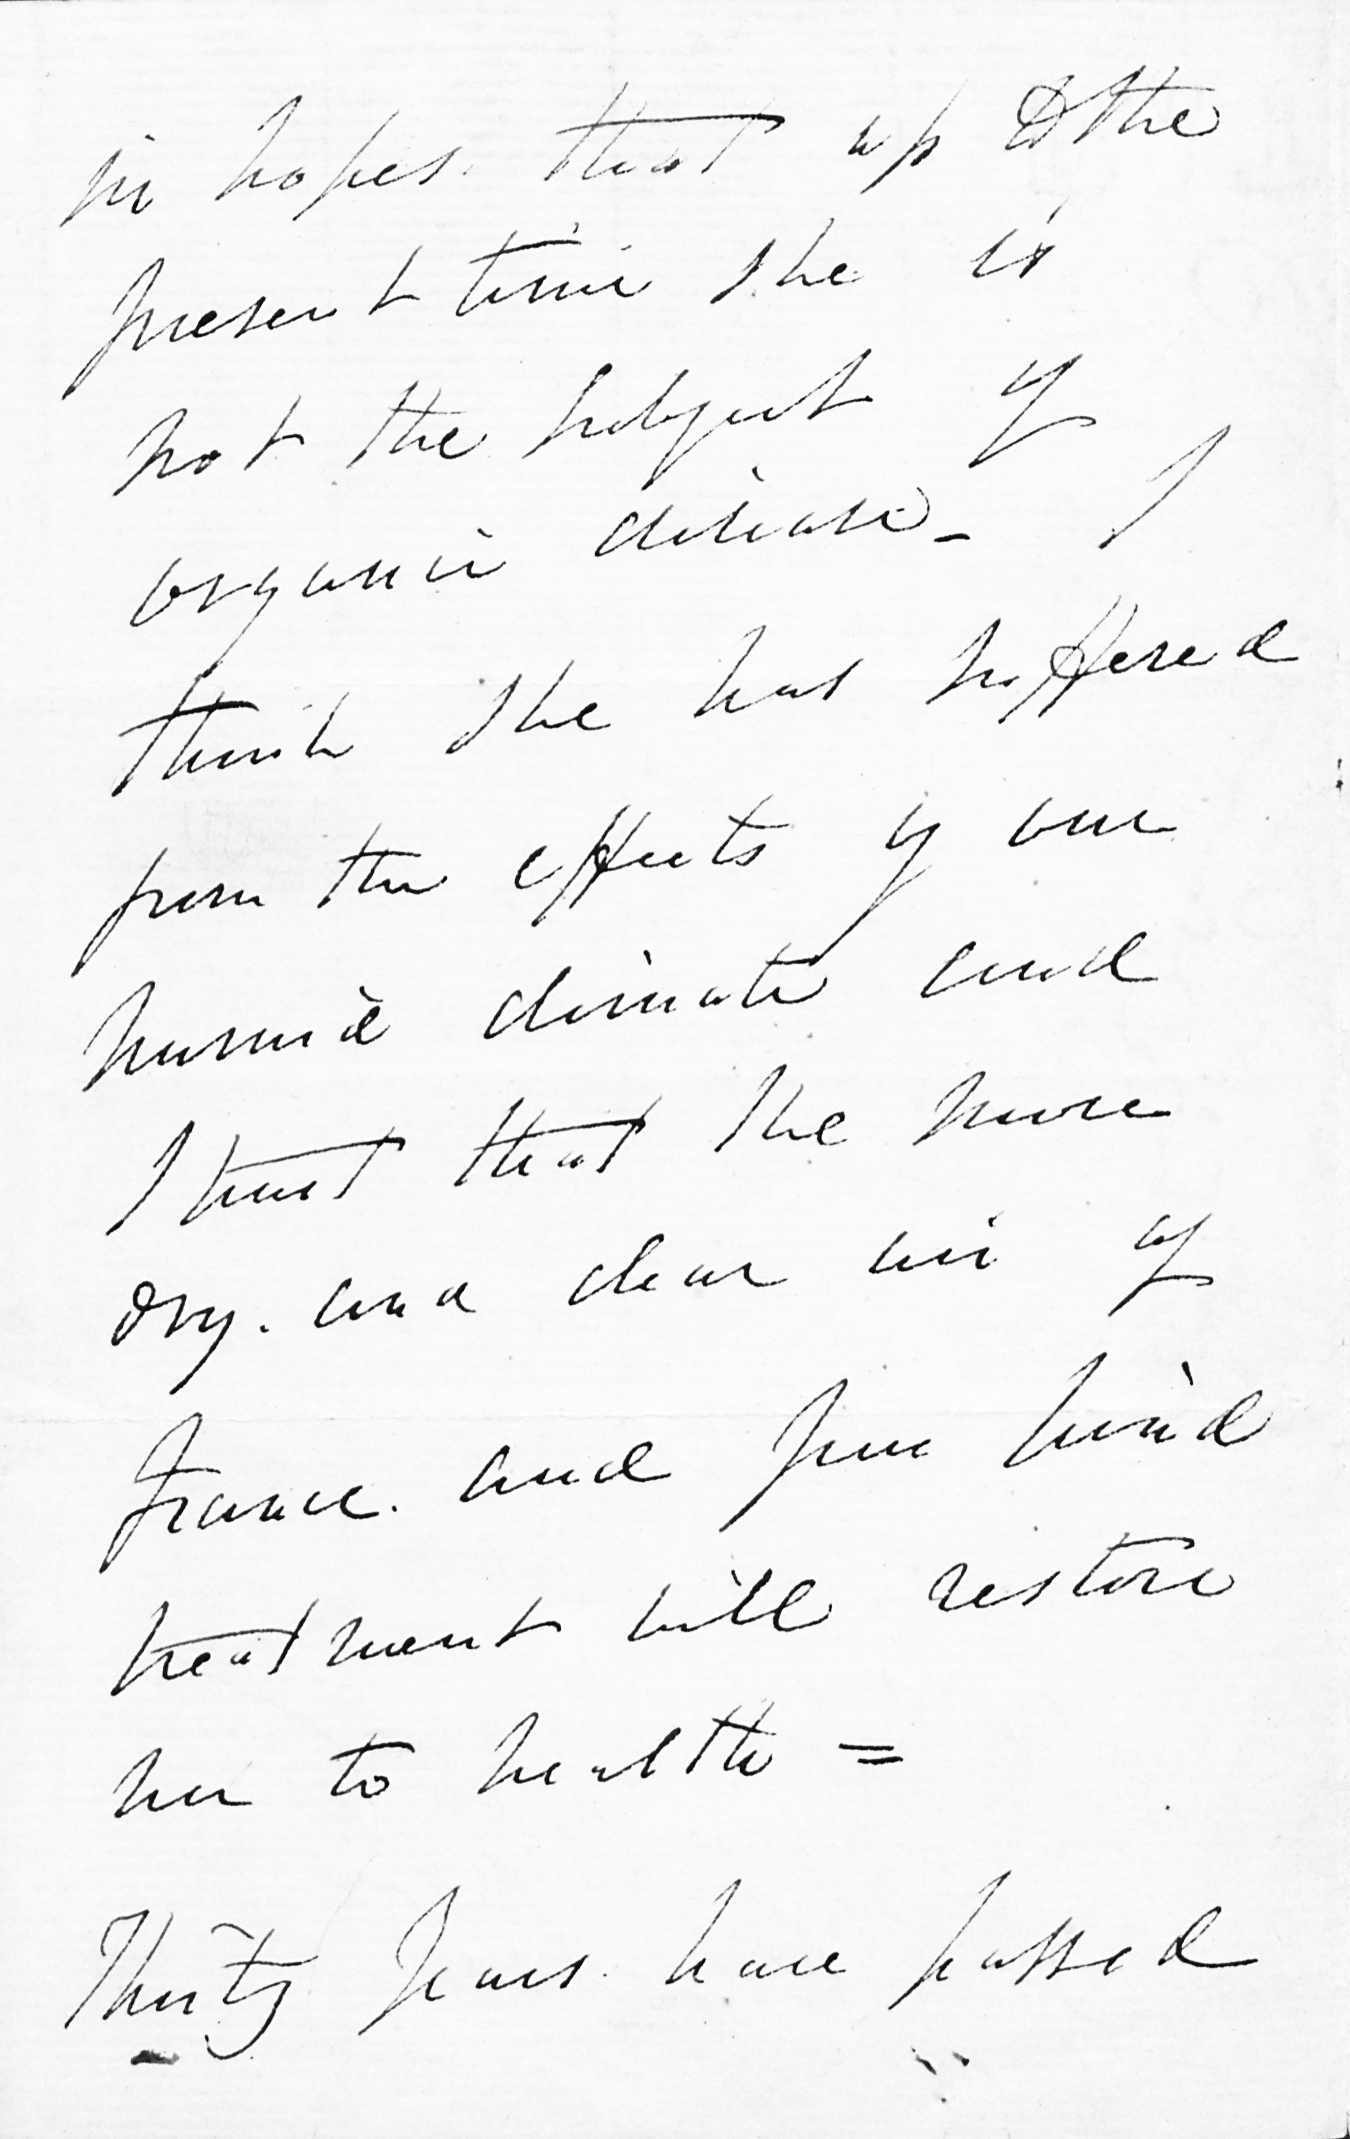 in hopes. that up to the
present time she is
not the subject of
organic disease_ I
think she has suffered
from the effects of our
humid climate and
I trust that the more
dry. and clear air of
France. and your kind
treatment will restore
her to health =
Thirty years have passed